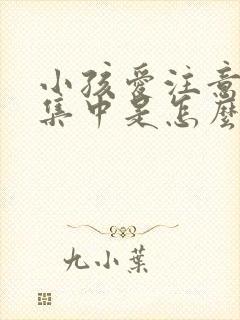 小孩愛注意
集中是怎麼
九小葉